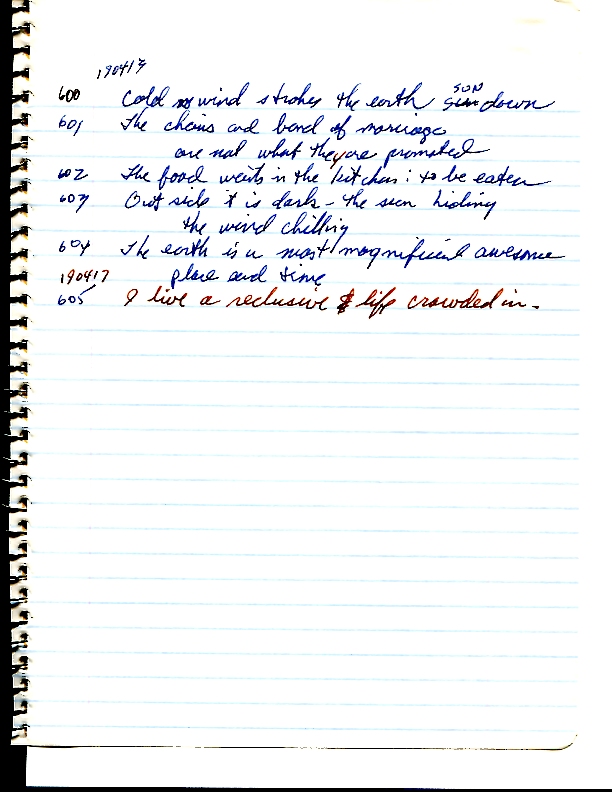 190413
600 Cold wind strokes the earth sun down
601 The chains and bond of marriage
are not what they are promoted
602 The food waits in the kitchen: to be eaten
603 Out side it is dark - the sun hiding
the wind chilling
604 The earth is a most magnificent awesome
190417 place and time
605 I live a reclusive life crowded in.